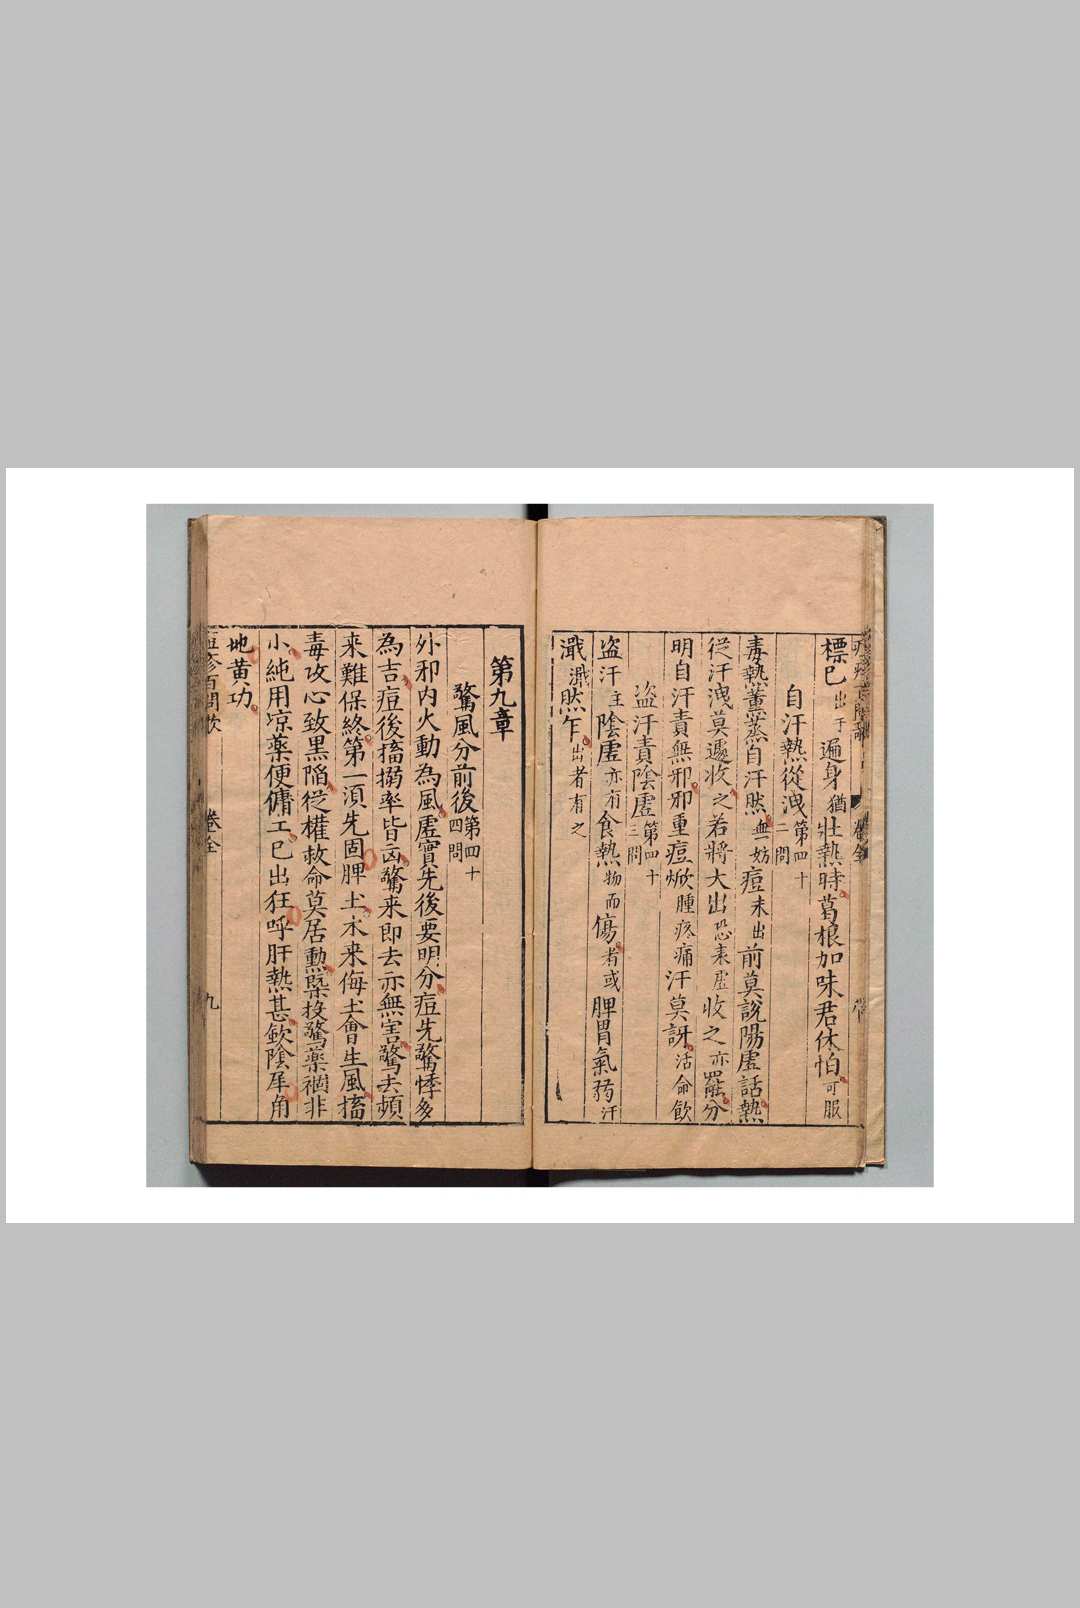 標已出于遍身猶壯熱時葛根加味君休怕可服
自汗熱從洩第四十二問
毒熱薰蒸自汗然無妨痘未出前莫說陽虛話熱
從汗洩莫遽收之若將大出恐表虛收之亦罷分
明自汗責無邪邪重痘焮腫疼痛汗莫訝活命飲
盜汗責陰虛第四十三問
盜汗主陰虛亦有食熱物而傷者或脾胃氣弱汗
濈濈然乍出者有之
第九章
驚風分前後第四十四問
外邪内火動為風虛實先後要明分痘先驚悸多
為吉痘後搐搦率皆凶驚来即去亦無害驚去頻
来難保終第一須先固脾土木来侮土會生風搐
毒攻心致黒陷従權救命莫居勲槩投驚藥禍非
小純用凉藥便傭工已出狂呼肝熱甚欬陰犀角
地黄功
痘疹百問歌 卷全 九